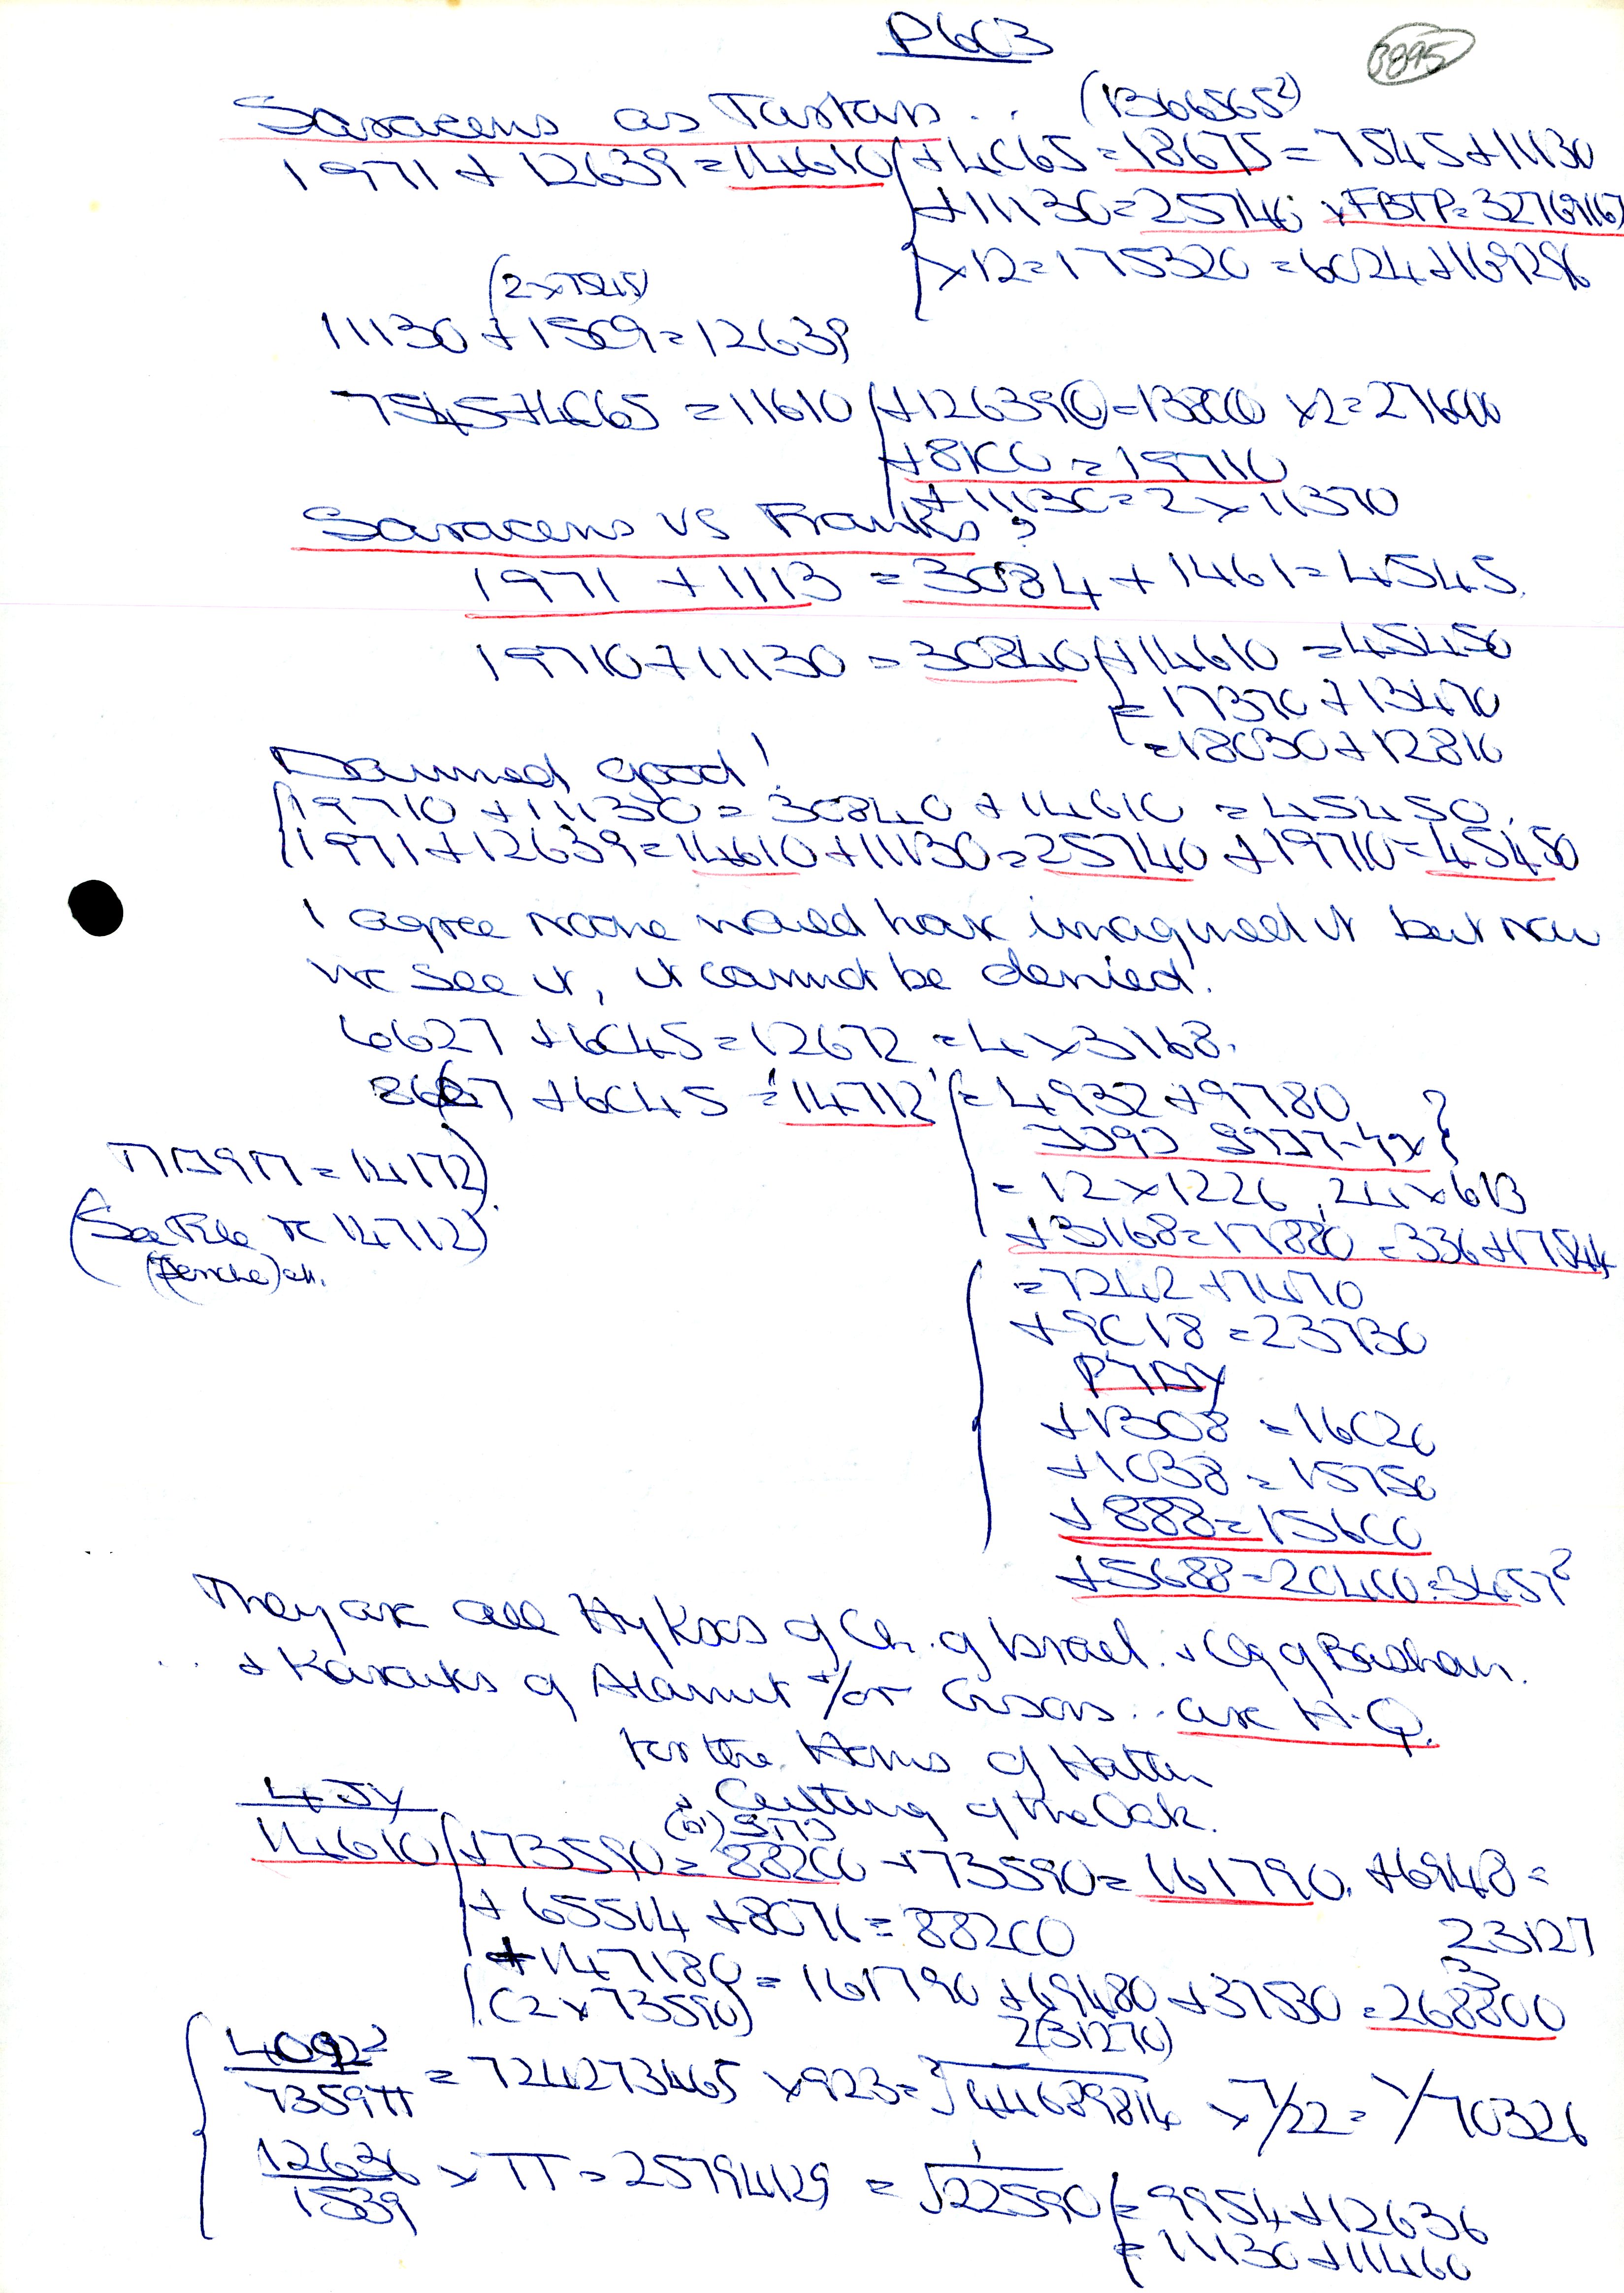 P603
3895
Saracens as Tartars . . (1366565²)
1971 + 12639 = 14610 + 4065 = 18675 = 7545 + 11130
+ 11130 = 25740 × FBTP = 32769167
× 12 = 175320 = 6024 + 169296
(2 × 7545)
11130 + 1509 = 12639
7545 + 4065 = 11610 + 126390 = 138000 × 2 = 276000
+ 8100 = 19710
+ 11130 = 2 × 11370
Saracens vs Franks ?
1971 + 1113 = 3084 + 1461 = 4545.
19710 + 11130 = 30840 + 14610 = 45450
= 17370 + 13470
= 18030 + 12810
Damned good !
19710 + 11130 = 30840 + 14610 = 45450.
1971 + 12639 = 14610 + 11130 = 25740 + 19710 = 45450
I agree none would have imagined it but now
we see it, it cannot be denied.
6627 + 6045 = 12672 = 4 × 3168.
8667 + 6045 = 14712 = 4932 + 9780 ?
= 14172)
= 12 × 1226, 24 × 613
(See File re 14712)
+ 3168 = 17880 = 336 + 17544
= 7242 + 7470
+ 9018 = 23730
+ 1308 = 16020
+ 1038 = 15750
+ 888 = 15600
+ 5688 = 20400 = 3457²
They are all Hyksos of Ch. of Israel. + Og of Bashan.
. . + Karaks of Alamut +/or Gisors . . are H.Q.
for the Horns of Hattin
+ Cutting of the Oak.
4 JY
14610 + 73590 = 88200 + 73590 = 161790. + 69480 =
+ 65514 + 8076 = 88200
23127
+ 147180 = 161790 + 69480 + 37530 = 268800
(2 × 73590)
2(31270)
4092² / 7359π = 724273465 × 923 = ∛44689814 × 7/22 = 1/70326
12636 / 1539 × π = 25794129 = √22590 = 9954 + 12636
= 11130 + 11460